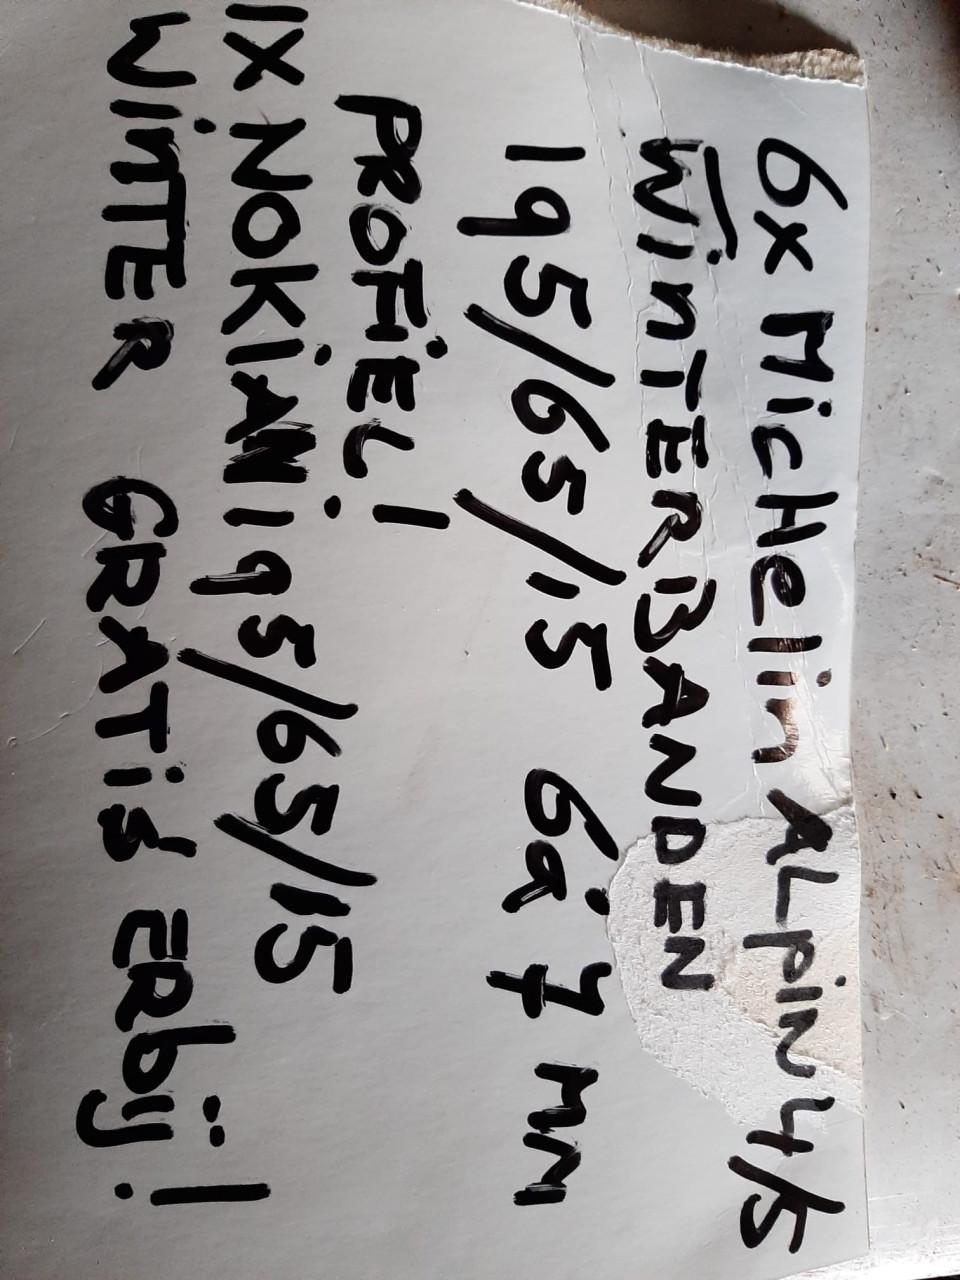 6x Michelin ALpin 4/5
WinTERBANDEN
195/65/15 6à7 MM
PROFiEL!
1X NOKiAN 195/65/15
WinTER GRATis ERbij!